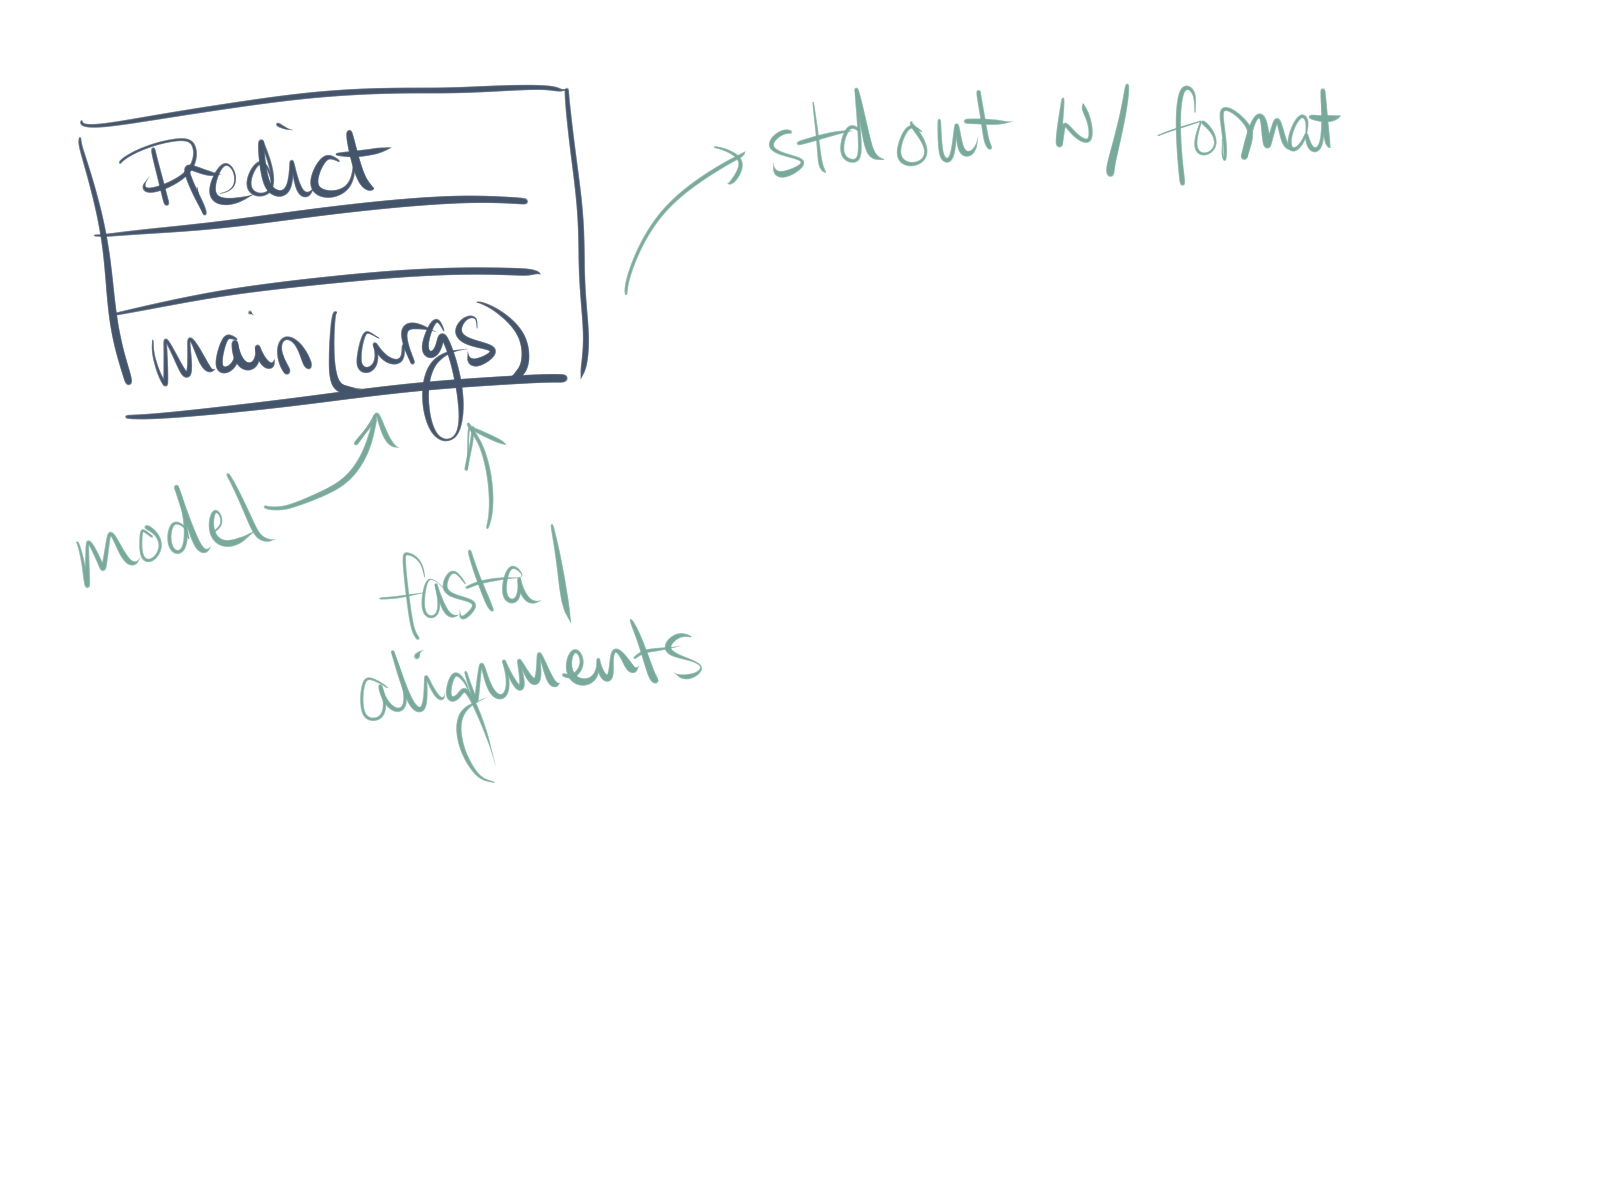 Predict
main(args)
stdout w/ format
model
fasta/
alignments